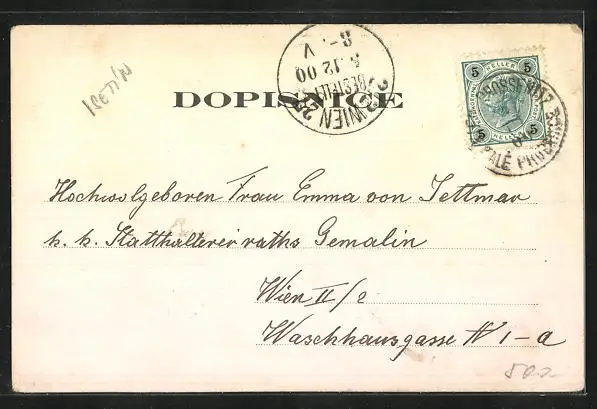 DOPISNICE
WIEN
BESTELLT
5.12 00
8-V
5 HELLER 5
5 5
Hochwolgeboren Frau Emma von Jettmar
k. k. Statthaltereiraths Gemalin
Wien II/2
Waschhausgasse N 1-a
500.-